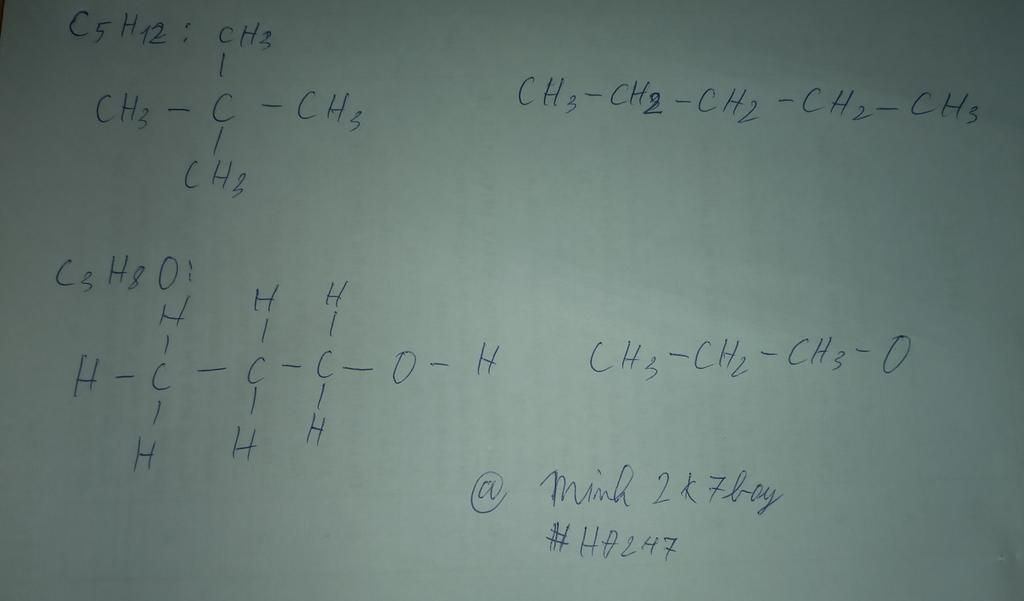 C5H12:
CH3
|
CH3 - C - CH3
|
CH3
CH3 - CH2 - CH2 - CH2 - CH3
C3H8O:
H H H
| | |
H - C - C - C - O - H
| | |
H H H
CH3 - CH2 - CH3 - O
@ Minh 2k7boy
#H0247